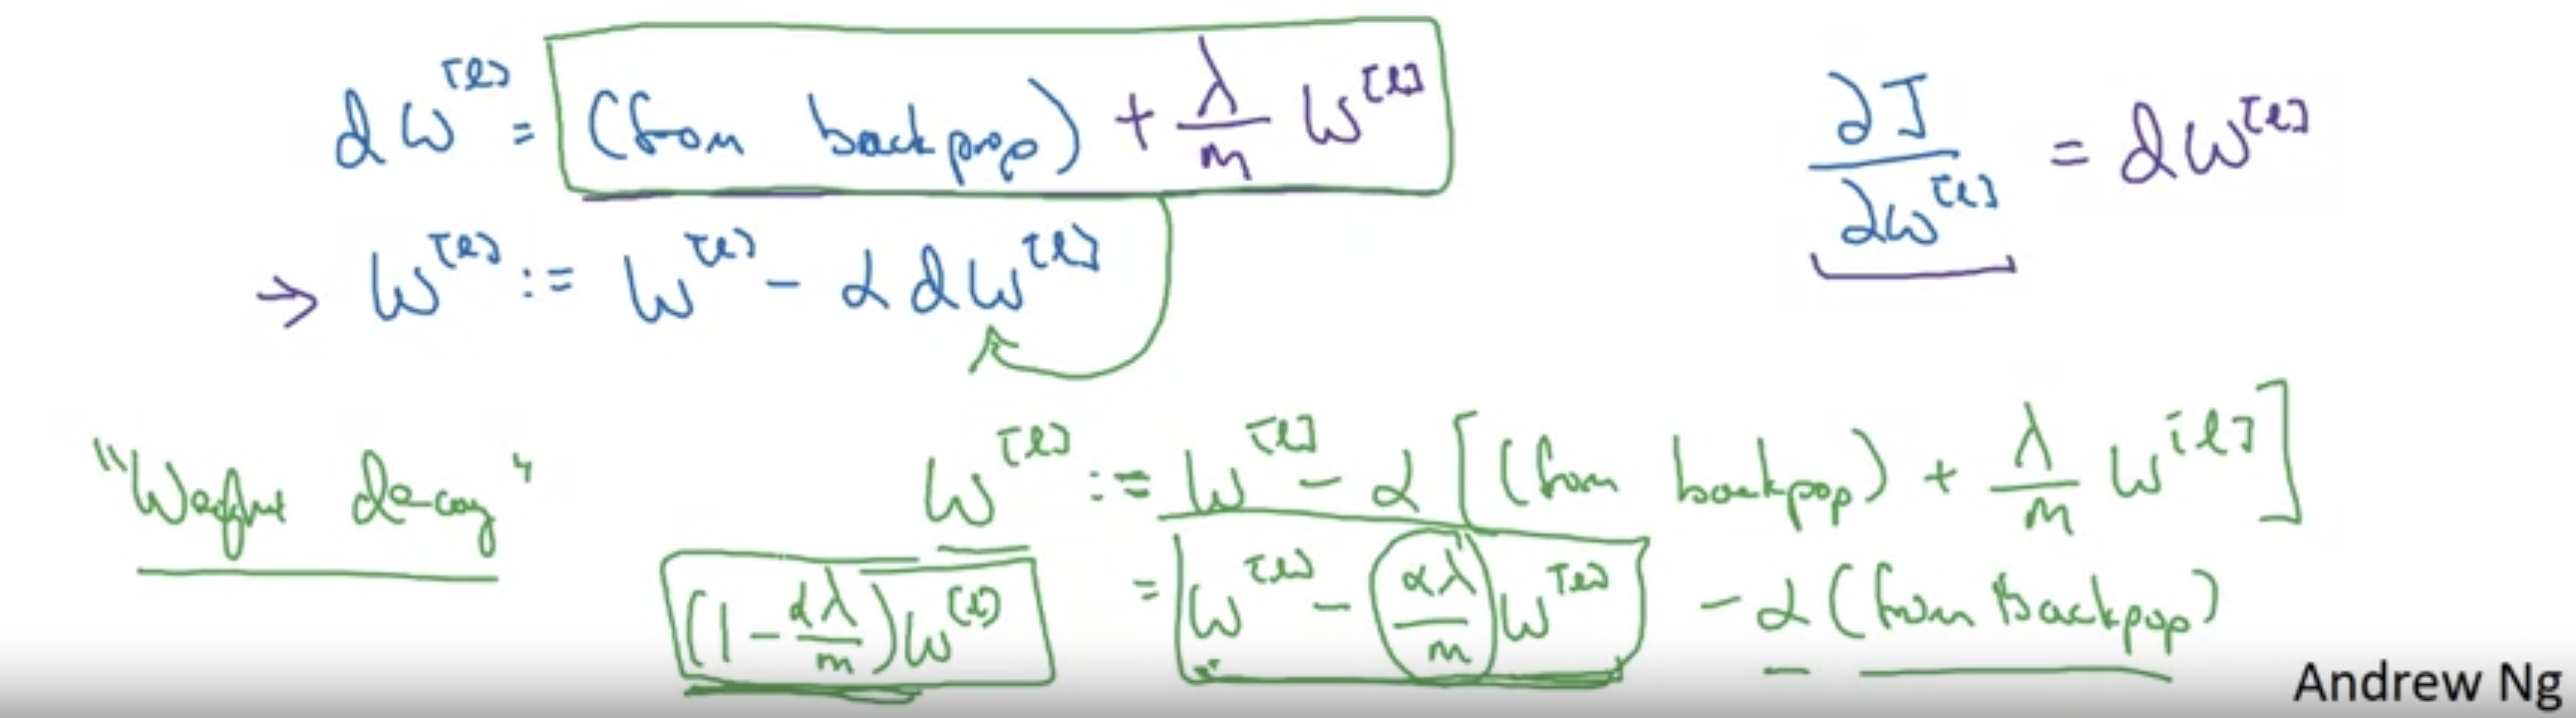 dW^[l] = (from backprop) + λ/m W^[l]
∂J/∂W^[l] = dW^[l]
→ W^[l] := W^[l] - α dW^[l]
"Weight decay"
W^[l] := W^[l] - α [(from backpop) + λ/m W^[l]]
= W^[l] - αλ/m W^[l] - α (from backpop)
(1 - αλ/m) W^[l]
Andrew Ng